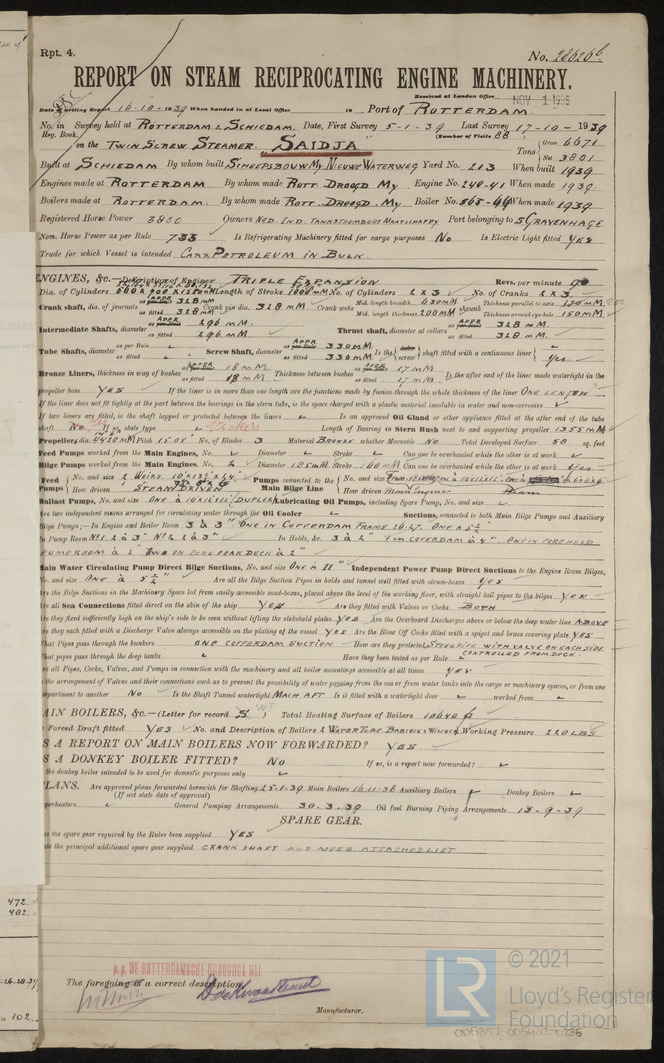 Rpt. 4.
No. 28626b
REPORT ON STEAM RECIPROCATING ENGINE MACHINERY.
Received at London Office NOV 1 1939
Date of writing Report 16-10-1939 When handed in at Local Office 19 Port of ROTTERDAM.
No. in Reg. Book. Survey held at ROTTERDAM & SCHIEDAM. Date, First Survey 5-1-39 Last Survey 17-10-1939
(Number of Visits 88)
on the TWIN SCREW STEAMER. "SAIDJA" Tons Gross 6671 Net 3801
Built at SCHIEDAM By whom built SCHEEPSBOUW My NIEUWE WATERWEG Yard No. 213 When built 1939
Engines made at ROTTERDAM By whom made ROTT. DROOGD My Engine No. 240-41 When made 1939.
Boilers made at ROTTERDAM. By whom made ROTT. DROOGD. My Boiler No. When made 1939
Registered Horse Power Owners NED. IND. TANKSTOOMBOOT MAATSCHAPPY Port belonging to S GRAVENHAGE
Nom. Horse Power as per Rule 733 Is Refrigerating Machinery fitted for cargo purposes NO Is Electric Light fitted YES
Trade for which Vessel is intended CARR PETROLEUM IN BULK.
ENGINES, &c.—Description of Engines TRIPLE EXPANSION Revs. per minute 90
Dia. of Cylinders Length of Stroke 1000 mM No. of Cylinders 2 x 3 No. of Cranks 2 x 3
Crank shaft, dia. of journals as APPR 328 mM as fitted 328 mM Crank pin dia. 328 mM Crank webs Mid. length breadth 630 mM Mid. length thickness 200 mM shrunk Thickness parallel to axis Thickness around eye-hole 150 mM
Intermediate Shafts, diameter as APPR 296 mM as fitted 296 mM. Thrust shaft, diameter at collars as APPR 328 mM as fitted 328 mM.
Tube Shafts, diameter as per Rule as fitted Screw Shaft, diameter as APPR 330 mM as fitted 330 mM Is the screw shaft fitted with a continuous liner Yes
Bronze Liners, thickness in way of bushes as APPR 18 mM as fitted 18 mM Thickness between bushes as APPR 17 mM as fitted 17 mM Is the after end of the liner made watertight in the
propeller boss YES If the liner is in more than one length are the junctions made by fusion through the whole thickness of the liner ONE LENGTH
If the liner does not fit tightly at the part between the bearings in the stern tube, is the space charged with a plastic material insoluble in water and non-corrosive
If two liners are fitted, is the shaft lapped or protected between the liners Is an approved Oil Gland or other appliance fitted at the after end of the tube
shaft If so, state type Length of Bearing in Stern Bush next to and supporting propeller 1355 mM
Propeller, dia. 4420 mM Pitch 15'05" No. of Blades 3 Material BRONZE whether Moveable NO Total Developed Surface 58 sq. feet
Feed Pumps worked from the Main Engines, No. Diameter Stroke Can one be overhauled while the other is at work
Bilge Pumps worked from the Main Engines, No. 2 Diameter 185 mM Stroke Can one be overhauled while the other is at work Yes
Feed Pumps No. and size 2 WEIRS How driven STEAM DRIVEN Pumps connected to the Main Bilge Line No. and size How driven
Ballast Pumps, No. and size ONE A 10x12x12 (DUPLEX) Lubricating Oil Pumps, including Spare Pump, No. and size
Are two independent means arranged for circulating water through the Oil Cooler Suctions, connected to both Main Bilge Pumps and Auxiliary
Bilge Pumps;—In Engine and Boiler Room 3 A 3" ONE IN COFFERDAM FRAME 26-27. ONE A 5½"
In Pump Room No 1 2 A 3" No 2 2 A 3" In Holds, &c. 3 A 2" COFERDAM A 4" ONE IN FOREHOLD
PUMPROOM A 2" TWO IN FORE PEAK DECK A 2"
Main Water Circulating Pump Direct Bilge Suctions, No. and size ONE A 11" Independent Power Pump Direct Suctions to the Engine Room Bilges,
No. and size ONE A 5½" Are all the Bilge Suction Pipes in holds and tunnel well fitted with strum-boxes YES
Are the Bilge Suctions in the Machinery Space led from easily accessible mud-boxes, placed above the level of the working floor, with straight tail pipes to the bilges YES
Are all Sea Connections fitted direct on the skin of the ship YES Are they fitted with Valves or Cocks BOTH
Are they fixed sufficiently high on the ship's side to be seen without lifting the stokehold plates YES Are the Overboard Discharges above or below the deep water line ABOVE
Are they each fitted with a Discharge Valve always accessible on the plating of the vessel YES Are the Blow Off Cocks fitted with a spigot and brass covering plate YES
What Pipes pass through the bunkers ONE COFFERDAM SUCTION How are they protected STEELPIPE WITH VALVE ON EACH SIDE
What pipes pass through the deep tanks Have they been tested as per Rule CONTROLLED FROM DECK.
Are all Pipes, Cocks, Valves, and Pumps in connection with the machinery and all boiler mountings accessible at all times YES
Is the arrangement of Valves and their connections such as to prevent the possibility of water passing from the sea or from water tanks into the cargo or machinery spaces, or from one
compartment to another NO Is the Shaft Tunnel watertight MACH AFT Is it fitted with a watertight door worked from
MAIN BOILERS, &c.—(Letter for record S WT) Total Heating Surface of Boilers 10640
Is Forced Draft fitted YES No. and Description of Boilers 2 WATER TUBE BABCOCK & WILCOX Working Pressure 220 LBS
IS A REPORT ON MAIN BOILERS NOW FORWARDED? YES
IS A DONKEY BOILER FITTED? NO If so, is a report now forwarded?
Is the donkey boiler intended to be used for domestic purposes only
PLANS. Are approved plans forwarded herewith for Shafting 25-1-39 Main Boilers 16-11-38 Auxiliary Boilers Donkey Boilers
(If not state date of approval)
Superheaters General Pumping Arrangements 30.3.39 Oil fuel Burning Piping Arrangements 13-9-39
SPARE GEAR.
Has the spare gear required by the Rules been supplied YES
State the principal additional spare gear supplied CRANK SHAFT AND ATTACHED LIST
472.
482.
26.28.31
102
p.p. DE ROTTERDAMSCHE DROOGDOK MIJ.
The foregoing is a correct description,
Manufacturer.
LR
© 2021
Lloyd's Register
Foundation
005397-005402-0235